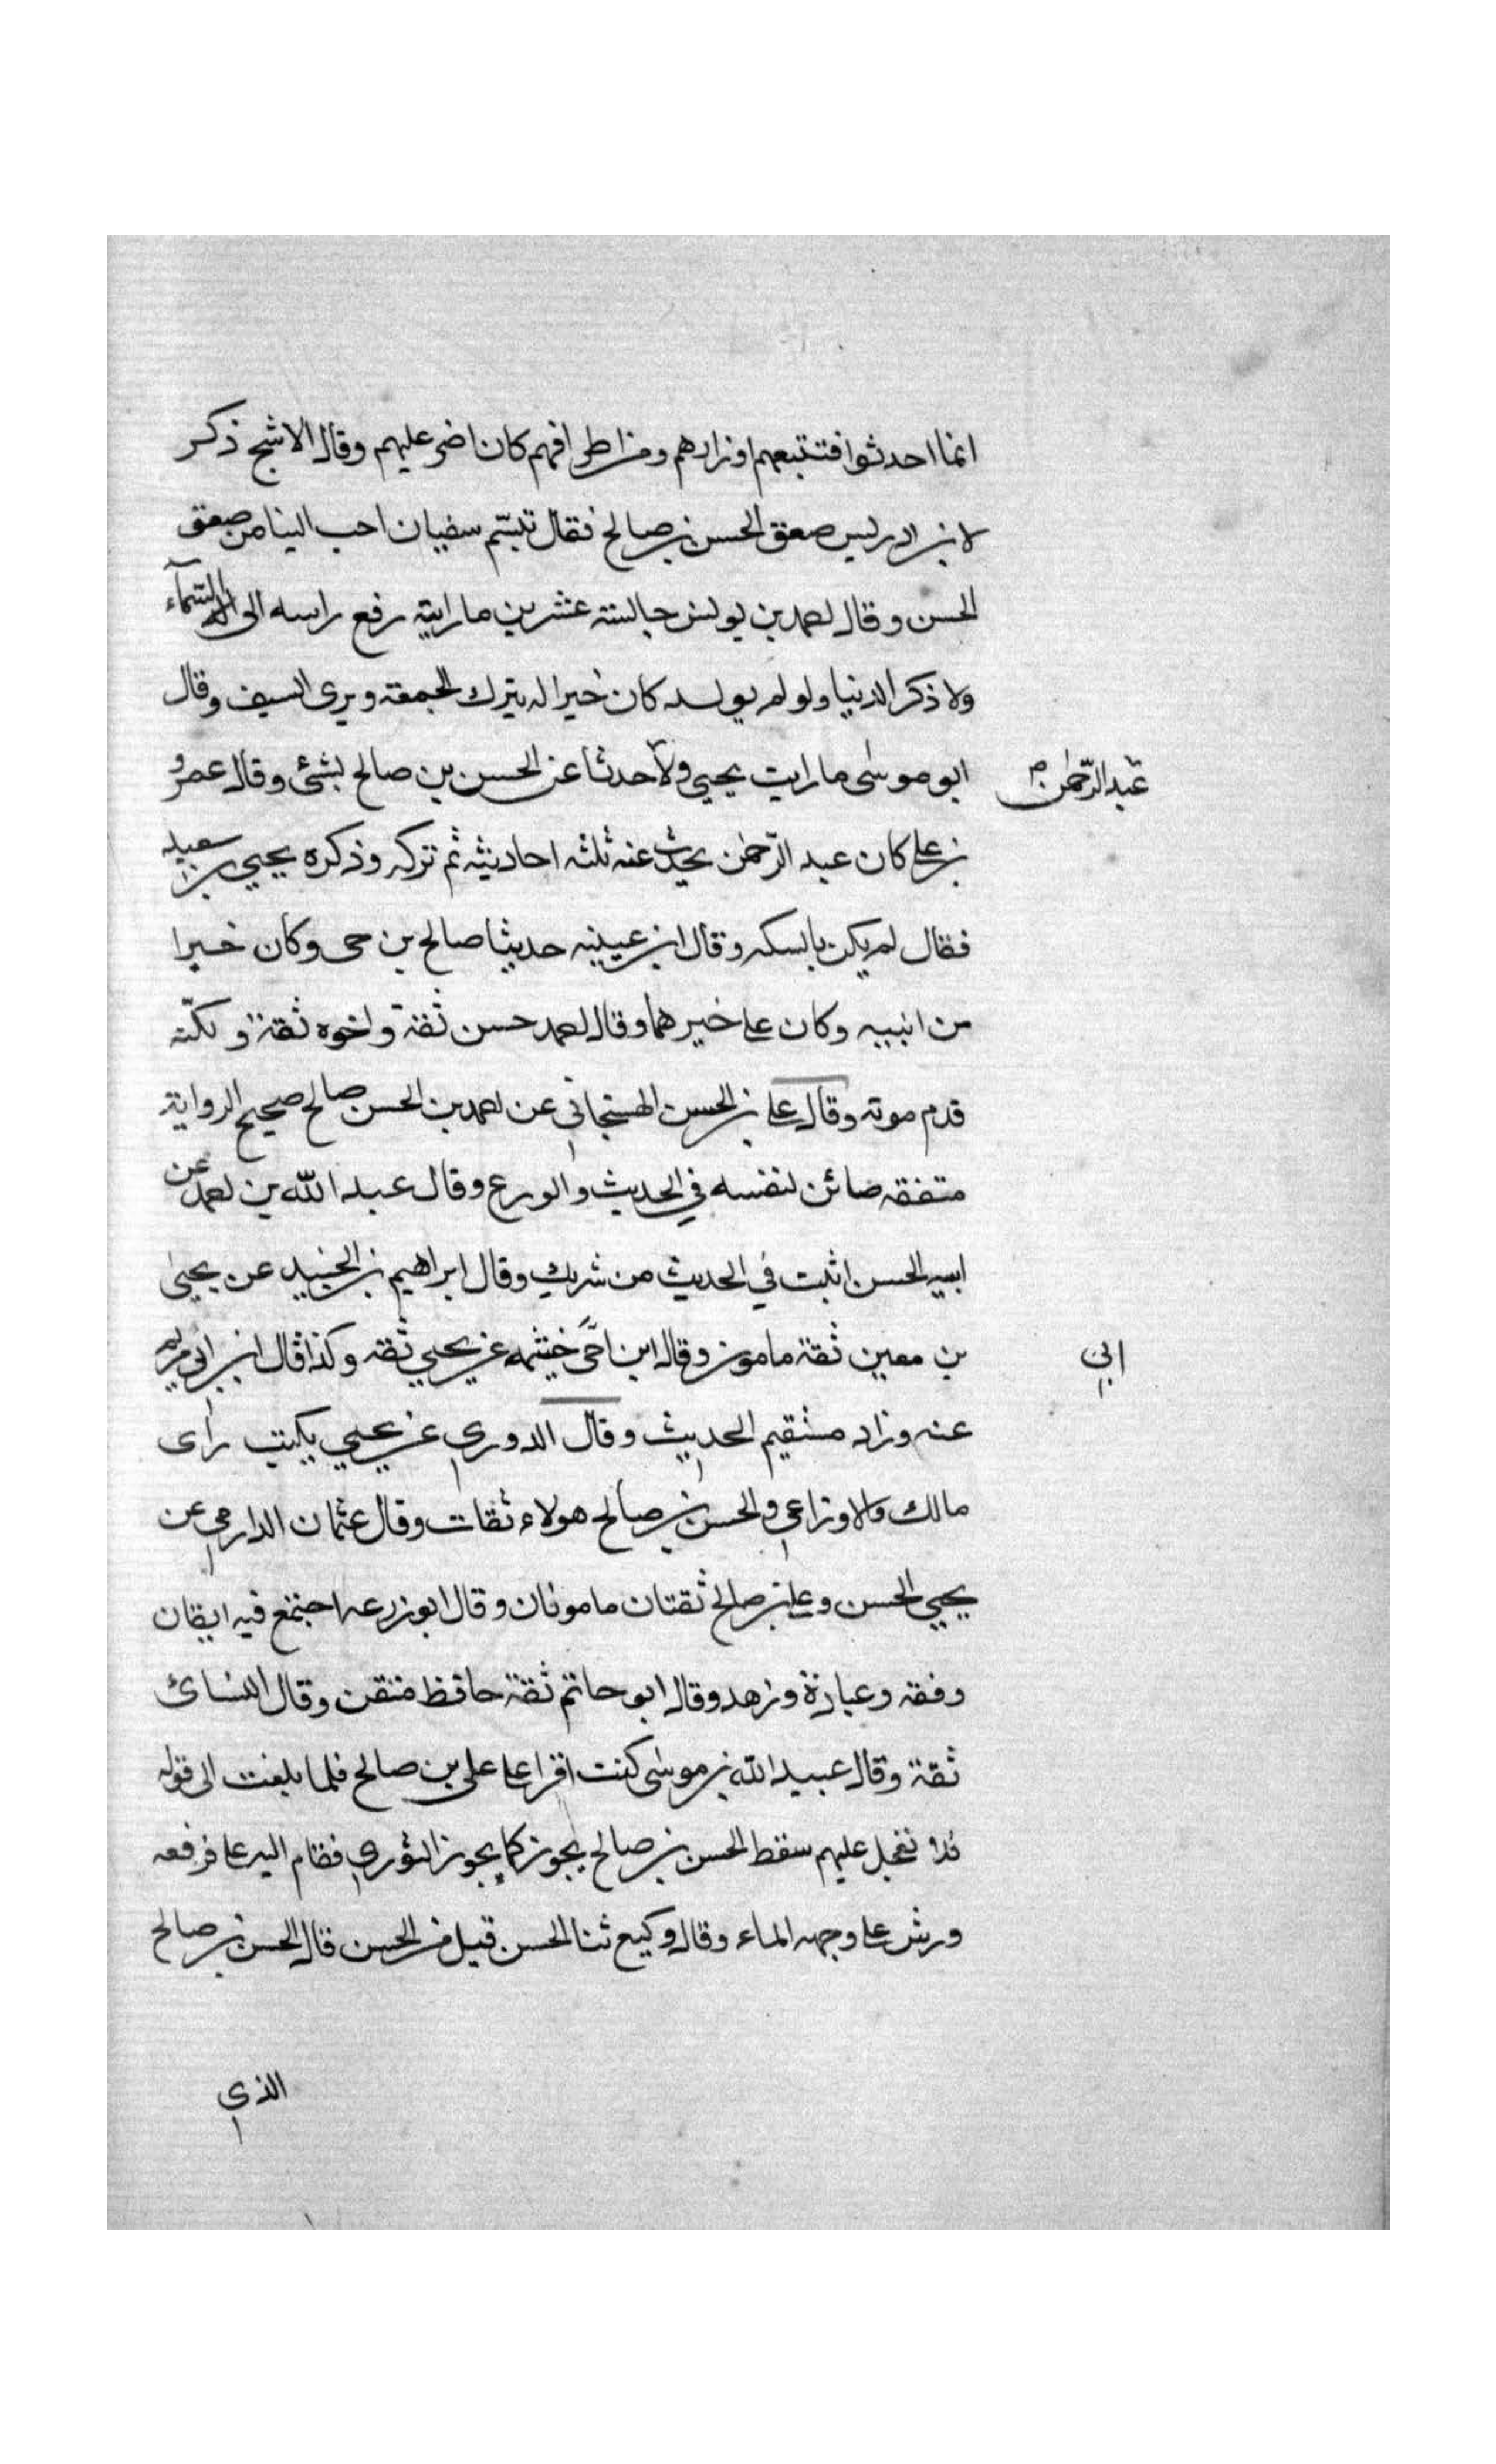 انما احدثوا فتتبعهم اوزارهم ومن اطراهم كان اضر عليهم وقال الاشج ذكر
لابن ادريس صعق الحسن بن صالح فقال تبسّم سفيان احب الينا من صعق
الحسن وقال احمد بن يونس جالسته عشرين ما رايته رفع راسه الى السّمآء
ولا ذكر الدنيا ولو لم يولد كان خيرا له يترك الجمعة ويرى السيف وقال
ابو موسى ما رايت يحيي ولا حدثا عن الحسن بن صالح بشئ وقال عمرو
عبد الرّحمٰن
بن علي كان عبد الرّحمٰن يحدث عنه ثلثه احاديثه ثم تركه وذكره يحيي بن سعيد
فقال لم يكن بالسكه وقال ابن عيينه حديثا صالح بن حى وكان خيرا
من ابنيه وكان علي خيرهما وقال احمد حسن ثقة واخوه ثقة و لكنّه
قدم موته وقال علي بن الحسن الهسنجاني عن احمد بن الحسن صالح صحيح الرواية
متفقه صائن لنفسه في الحديث والورع وقال عبد الله بن احمد عن
ابيه الحسن اثبت في الحديث من شريك وقال ابراهيم بن الجنيد عن يحيىٰ
بن معين ثقة مامون وقال ابن خيثمه عن يحيي ثقه وكذا قال ابن ابي مريم
ابي
عنه وزاد مستقيم الحديث وقال الدوري عن يحيي يكتب راى
مالك والاوزاعي والحسن بن صالح هولاء ثقات وقال عثمان الدارمي عن
يحيي الحسن وعلي بن صالح ثقتان مامونان وقال ابو زرعه اجتمع فيه ايقان
وفقه وعبادة وزهد وقال ابو حاتم ثقة حافظ متقن وقال النسائ
ثقة وقال عبيد الله بن موسى كنت اقرا علي علي بن صالح فلما بلغت الى قوله
فلا تعجل عليهم سقط الحسن بن صالح يجوز كما يجوز الثوري فقام اليه علي فرفعه
ورش علي وجهه الماء وقال وكيع ثنا الحسن قيل من الحسن قال الحسن بن صالح
الذي